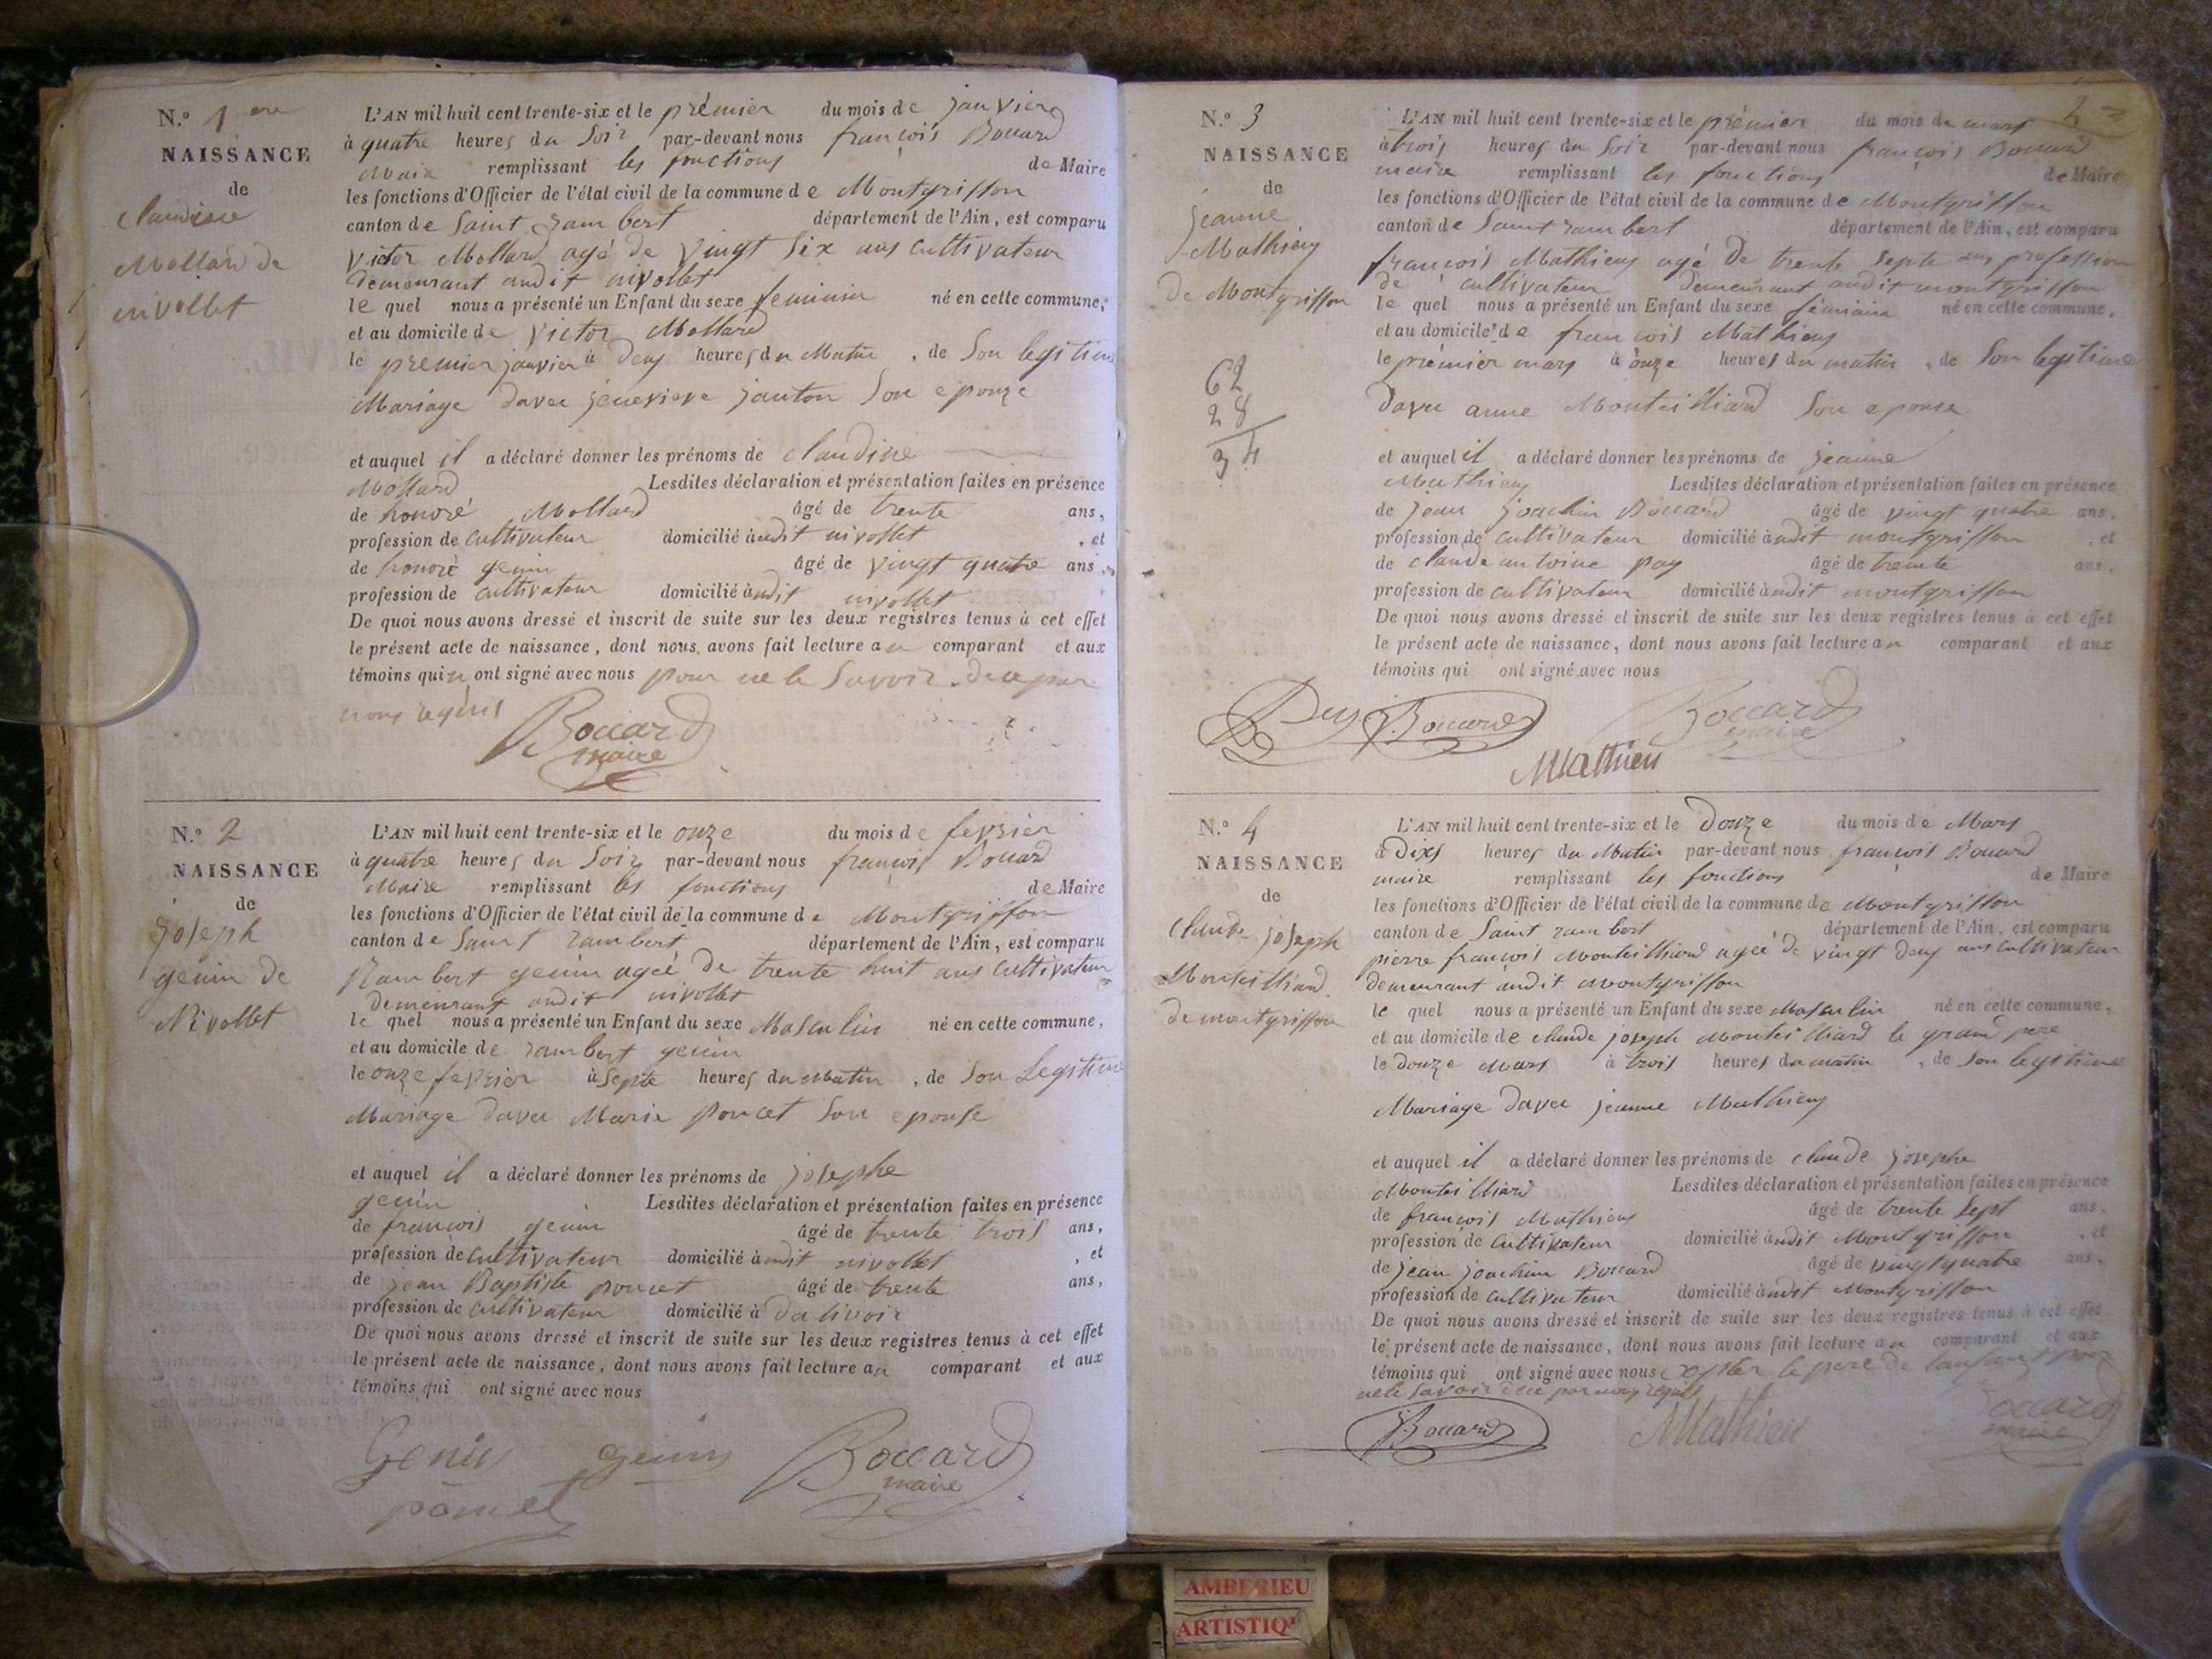 N.o 1ere
NAISSANCE
de
claudine
Mollard de
nivollet
L'AN mil huit cent trente-six et le prémier du mois de janvier
à quatre heures du soir par-devant nous françois Bouard
Maire remplissant les fonctions de Maire
les fonctions d'Officier de l'état civil de la commune de Montgriffon
canton de Saint rambert département de l'Ain, est comparu
victor Mollard agé de vingt six ans cultivateur
demeurant audit nivollet
le quel nous a présenté un Enfant du sexe feminin né en cette commune,
et au domicile de victor Mollard
le premier janvier à deux heures du Matin, de Son legitime
Mariage davec jenevieve janton Son epouze
et auquel il a déclaré donner les prénoms de claudine
Mollard Lesdites déclaration et présentation faites en présence
de honoré Mollard âgé de trente ans,
profession de cultivateur domicilié audit nivollet, et
de honoré genin âgé de vingt quatre ans,
profession de cultivateur domicilié audit nivollet
De quoi nous avons dressé et inscrit de suite sur les deux registres tenus à cet effet
le présent acte de naissance, dont nous avons fait lecture au comparant et aux
témoins qui n ont signé avec nous pour ne le Savoir de ce par
nous requis
Bouard
maire
N.o 2
NAISSANCE
de
joseph
genin de
Nivollet
L'AN mil huit cent trente-six et le onze du mois de fevrier
à quatre heures du Soir par-devant nous françois Bouard
Maire remplissant les fonctions de Maire
les fonctions d'Officier de l'état civil de la commune de Montgriffon
canton de Saint rambert département de l'Ain, est comparu
Rambert genin ageé de trente huit ans cultivateur
demeurant audit nivollet
le quel nous a présenté un Enfant du sexe Masculin né en cette commune,
et au domicile de rambert genin
le onze fevrier à Septe heures du Matin, de Son Legitime
Mariage davec Marie poncet Son epouse
et auquel il a déclaré donner les prénoms de josephe
genin Lesdites déclaration et présentation faites en présence
de françois genin âgé de trente trois ans,
profession de cultivateur domicilié audit nivollet, et
de jean Baptiste poncet âgé de trente ans,
profession de cultivateur domicilié à
De quoi nous avons dressé et inscrit de suite sur les deux registres tenus à cet effet
le présent acte de naissance, dont nous avons fait lecture au comparant et aux
témoins qui ont signé avec nous
Genin genin Bouard
poncet maire
N.o 3
NAISSANCE
de
jeanne
Mathieu
de Montgriffon
62
28
34
2
L'AN mil huit cent trente-six et le prémier du mois de mars
à trois heures du Soir par-devant nous françois Bouard
maire remplissant les fonctions de Maire
les fonctions d'Officier de l'état civil de la commune de Montgriffon
canton de Saint rambert département de l'Ain, est comparu
françois Mathieu agé de trente Septe ans profession
de cultivateur demeurant audit montgriffon
le quel nous a présenté un Enfant du sexe féminin né en cette commune,
et au domicile de francois Mathieu
le prémier mars à onze heures du matin, de Son legitime
davec anne Monteilliard Son epouse
et auquel il a déclaré donner les prénoms de jeanne
Mathieu Lesdites déclaration et présentation faites en présence
de jean joachim Bouard âgé de vingt quatre ans,
profession de cultivateur domicilié audit montgriffon, et
de claude antoine âgé de trente ans,
profession de cultivateur domicilié audit montgriffon
De quoi nous avons dressé et inscrit de suite sur les deux registres tenus à cet effet
le présent acte de naissance, dont nous avons fait lecture au comparant et aux
témoins qui ont signé avec nous
J. Bouard Bouard
maire
Mathieu
N.o 4
NAISSANCE
de
claude joseph
Monteilliard
de montgriffon
L'AN mil huit cent trente-six et le Douze du mois de Mars
à Dixs heures du Matin par-devant nous françois Bouard
maire remplissant les fonctions de Maire
les fonctions d'Officier de l'état civil de la commune de Montgriffon
canton de Saint rambert département de l'Ain, est comparu
pierre françois Monteilliard ageé de vingt deux ans cultivateur
demeurant audit Montgriffon
le quel nous a présenté un Enfant du sexe Masculin né en cette commune,
et au domicile de claude joseph Monteilliard le grand pere
le Douze Mars à trois heures du matin, de Son legitime
Mariage davec jeanne Mathieu
et auquel il a déclaré donner les prénoms de claude josephe
Monteilliard Lesdites déclaration et présentation faites en présence
de françois Mathieu âgé de trente Sept ans,
profession de cultivateur domicilié audit Montgriffon, et
de jean joachim Bouard âgé de vingt quatre ans,
profession de cultivateur domicilié audit Montgriffon
De quoi nous avons dressé et inscrit de suite sur les deux registres tenus à cet effet
le présent acte de naissance, dont nous avons fait lecture au comparant et aux
témoins qui ont signé avec nous le pere de lanfant pour
ne le Savoir de ce par nous requis
J. Bouard Mathieu Bouard
maire
AMBERIEU
ARTISTIQU